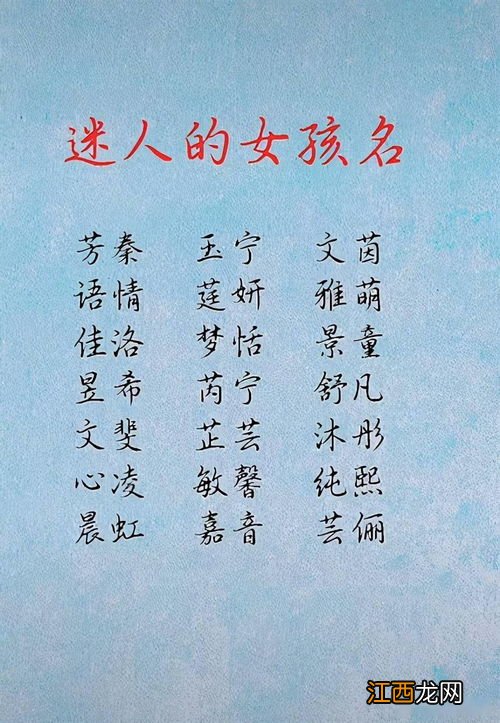 迷人的女孩名
芳秦 玉宁 文茵
语情 莛妍 雅萌
佳洛 梦恬 景童
昱希 芮宁 舒凡
文斐 芷芸 沐彤
心凌 敏馨 纯熙
晨虹 嘉音 芸俪
江西龙网